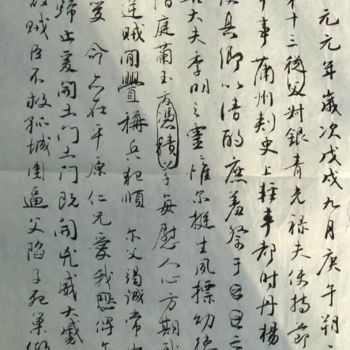 元元年歲次戊戌九月庚午朔
十三從父對銀青光祿夫使持節
事蒲州刺史上輕車都尉丹楊
侯真卿以清酌庶羞祭于亡
大夫季明之靈惟尔挺生夙標幼德
階庭蘭玉方憑積善每慰人心方期
逆賊間釁稱兵犯順 尔父竭誠常
受命亦在平原仁兄愛我恐傳
歸止爰開土門土門既開凶威大蹙
賊臣不救孤城圍逼父陷子死巢傾